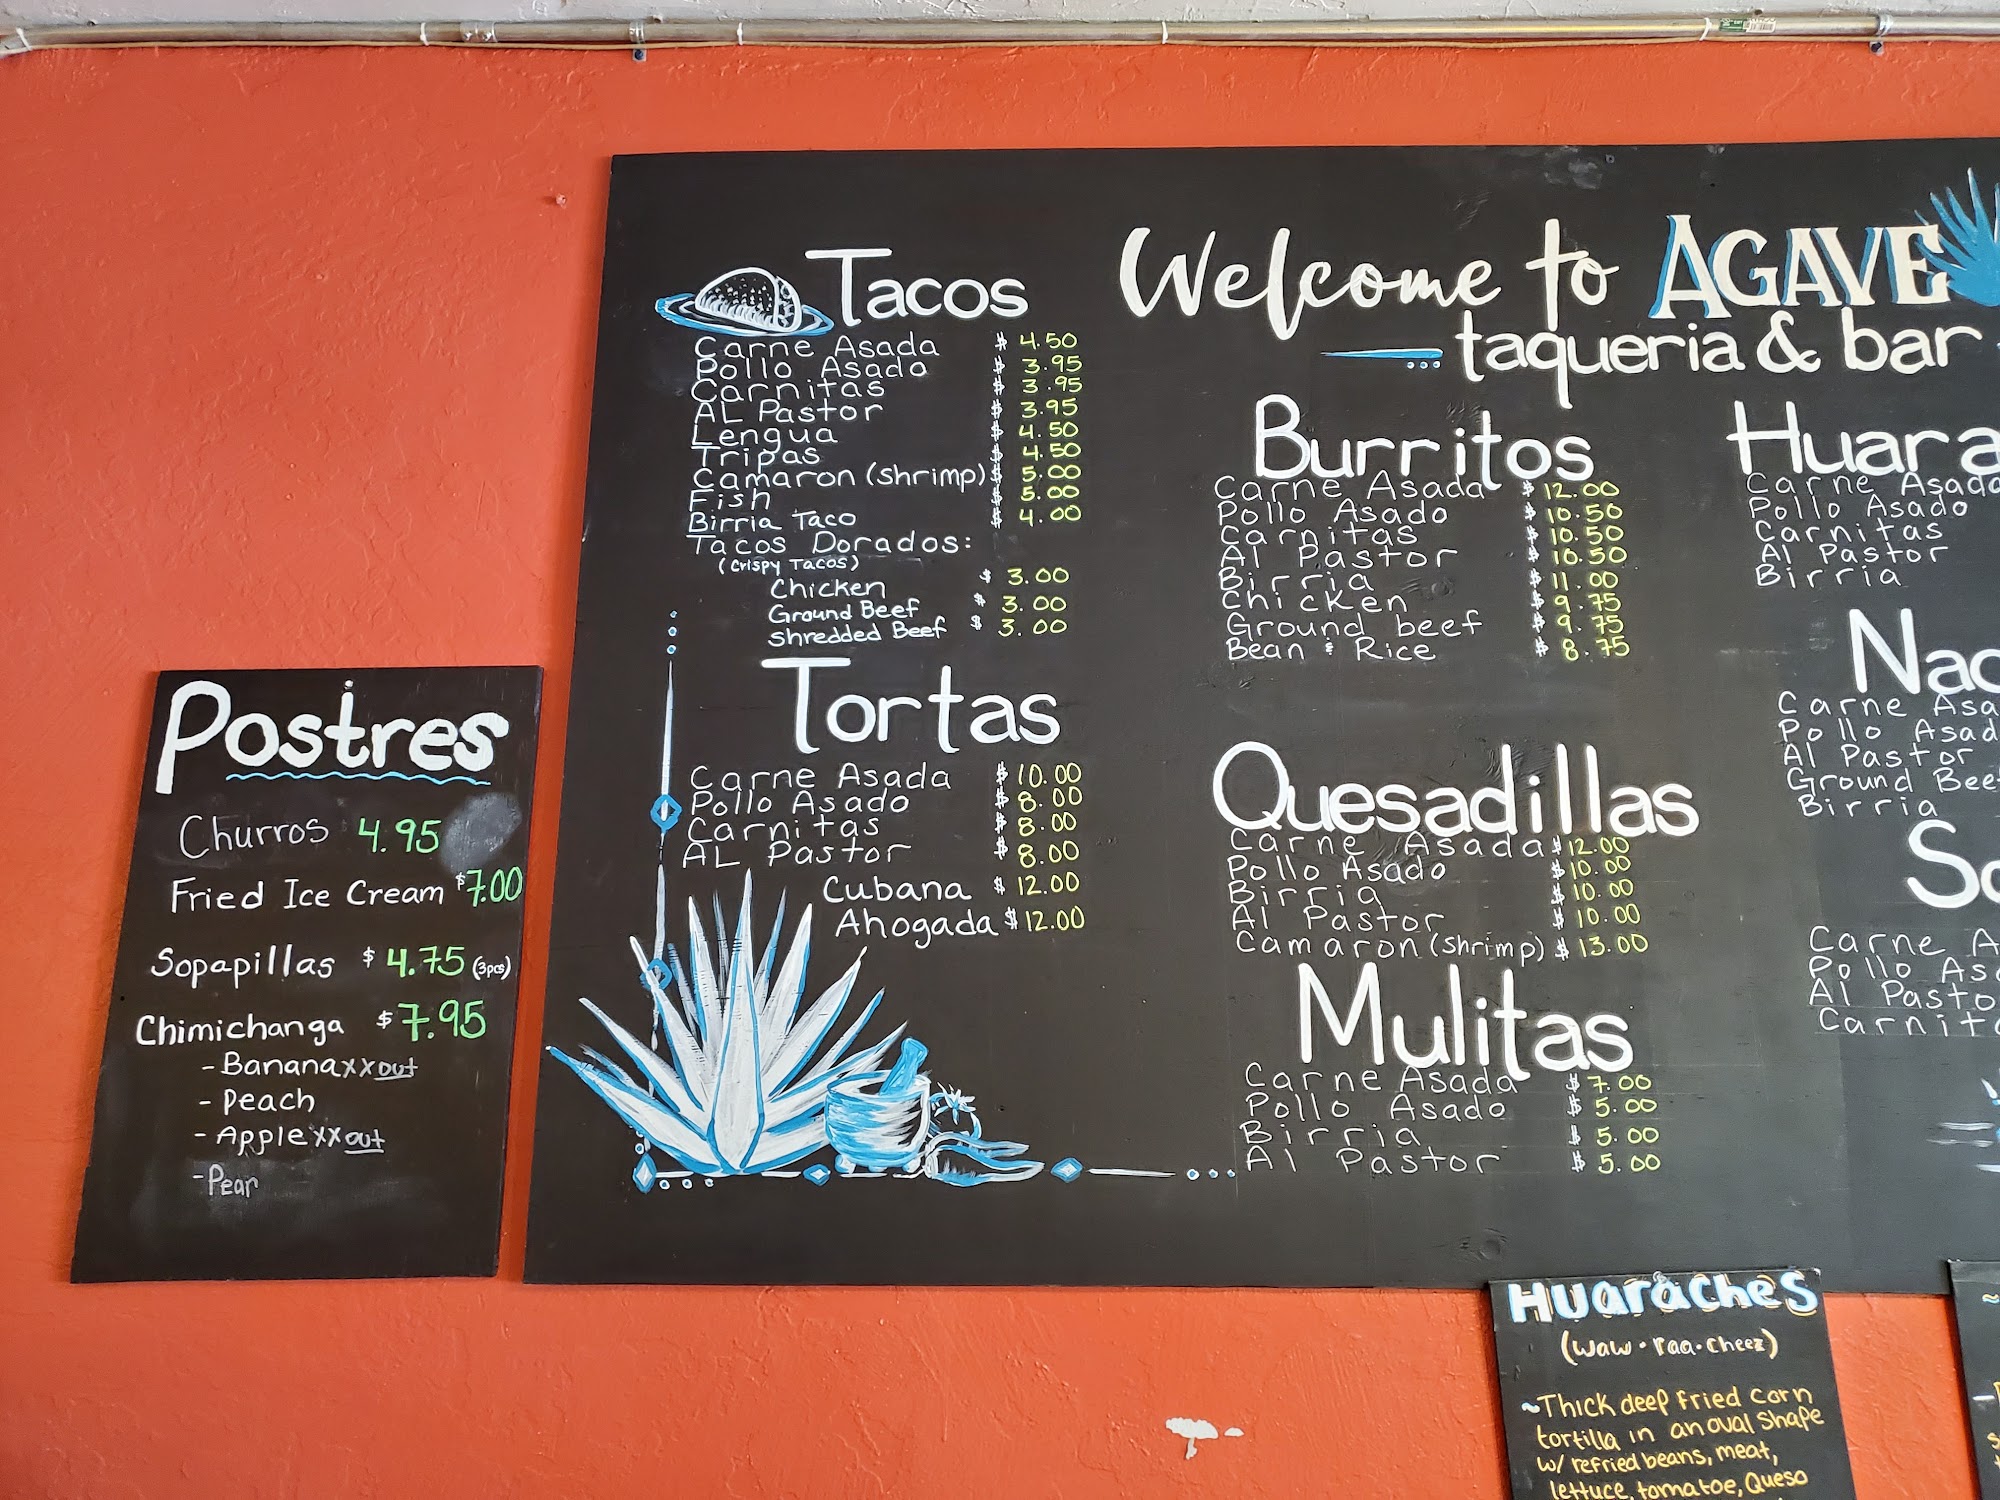 Postres
Churros 4.95
Fried Ice Cream $7.00
Sopapillas $4.75 (3pcs)
Chimichanga $7.95
- Banana xx out
- Peach
- Apple xx out
- Pear
Welcome to AGAVE
taqueria & bar
Tacos
Carne Asada $4.50
Pollo Asado $3.95
Carnitas $3.95
AL Pastor $3.95
Lengua $4.50
Tripas $4.50
Camaron (shrimp) $5.00
Fish $5.00
Birria Taco $4.00
Tacos Dorados:
(Crispy Tacos)
Chicken $3.00
Ground Beef $3.00
shredded Beef $3.00
Tortas
Carne Asada $10.00
Pollo Asado $8.00
Carnitas $8.00
AL Pastor $8.00
Cubana $12.00
Ahogada $12.00
Burritos
Carne Asada $12.00
Pollo Asado $10.50
Carnitas $10.50
Al Pastor $10.50
Birria $11.00
Chicken $9.75
Ground beef $9.75
Bean & Rice $8.75
Quesadillas
Carne Asada $12.00
Pollo Asado $10.00
Birria $10.00
Al Pastor $10.00
Camaron (shrimp) $13.00
Mulitas
Carne Asada $7.00
Pollo Asado $5.00
Birria $5.00
Al Pastor $5.00
Huara
Carne Asada
Pollo Asado
Carnitas
Al Pastor
Birria
Nac
Carne Asa
Pollo Asad
Al Pastor
Ground Bee
Birria
So
Carne A
Pollo Asa
Al Pasto
Carnit
HUARACHES
(waw • raa • cheez)
~Thick deep fried corn
tortilla in an oval shape
w/ refried beans, meat,
lettuce, tomatoe, Queso